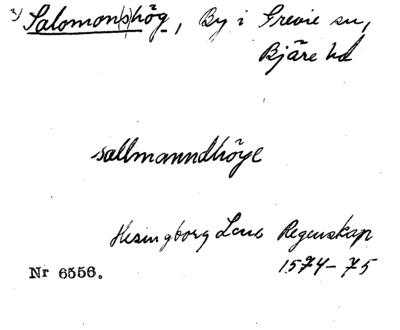 3) Salomon(s)hög, By i Grevie sn,
Bjäre hd
sallmanndhöye
Helsingborg Lens Regenskap
1574-75
Nr 6556.